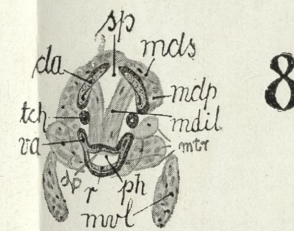 sp
da
mds
8
mdp
tch
mdil
va
mtr
dp
r
ph
mvl